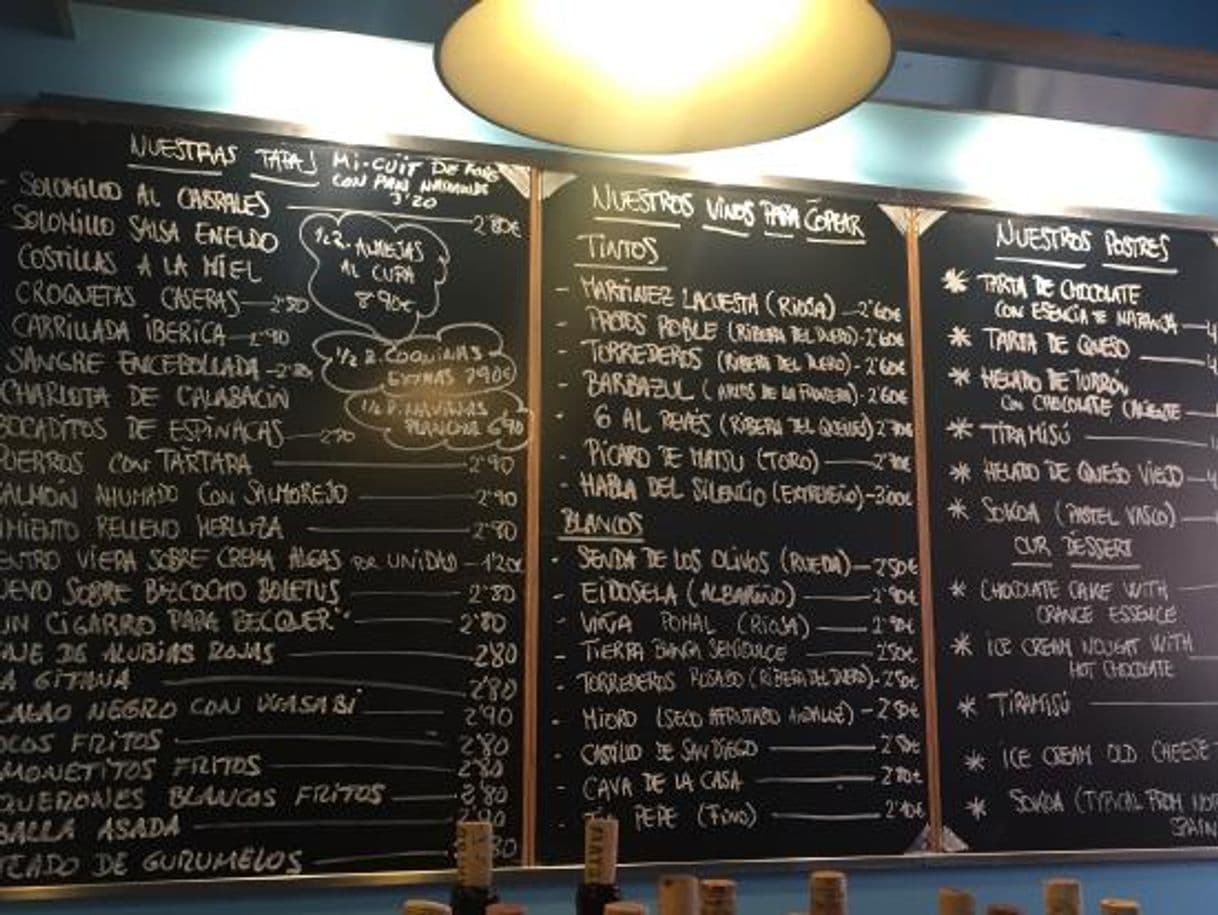 NUESTRAS TAPAS
MI-CUIT DE
CON PAN
3'20
SOLOMILLO AL CABRALES 2'80€
SOLOMILLO SALSA ENELDO
COSTILLAS A LA MIEL
CROQUETAS CASERAS
CARRILLADA IBERICA 2'90
SANGRE ENCEBOLLADA
CHARLOTA DE CALABACIN
BOCADITOS DE ESPINACAS
PUERROS CON TARTARA 2'90
SALMÓN AHUMADO CON SALMOREJO 2'90
IMIENTO RELLENO MERLUZA 2'80
ENTRO VIERA SOBRE CREMA ALGAS POR UNIDAD 1'20€
UEVO SOBRE BIZCOCHO BOLETUS 2'80
UN CIGARRO PARA BECQUER" 2'80
DE ALUBIAS ROJAS 2'80
A GITANA 2'80
CALAO NEGRO CON WASABI 2'90
OCOS FRITOS 2'80
MONETITOS FRITOS 2'80
QUERONES BLANCOS FRITOS 2'80
BALLA ASADA
TEADO DE GURUMELOS 80
1/2 R. ALMEJAS
AL CURA
8'90€
1/2 R. COQUINAS
EXTRAS 7'90€
1/2 R. NAVAJAS
PLANCHA 6'90
NUESTROS VINOS PARA COPEAR
TINTOS
- MARTINEZ LACUESTA (RIOJA) 2'60€
- PROTOS ROBLE (RIBERA DEL DUERO) 2'60€
- TORREDEROS (RIBERA DEL DUERO) 2'60€
- BARBAZUL (ARCOS DE LA FRONTERA) 2'60€
- 6 AL REVÉS (RIBERA DEL
- PICARO DE MATSU (TORO)
- HABLA DEL SILENCIO (EXTREMEÑO) 3'00€
BLANCOS
- SENDA DE LOS OLIVOS (RUEDA) 2'50€
- EIDOSELA (ALBARIÑO) 2'90€
- VIÑA POMAL (RIOJA)
- TIERRA BLANCA SEMIDULCE 2'50€
- TORREDEROS ROSADO (RIBERA DEL DUERO)
- MIORO (SECO AFRUTADO ANDALUZ)
- CASTILLO DE SAN DIEGO
- CAVA DE LA CASA
- PEPE (FINO)
NUESTROS POSTRES
* TARTA DE CHOCOLATE
CON ESENCIA DE NARANJA
* TARTA DE QUESO
* HELADO DE TURRÓN
CON CHOCOLATE CALIENTE
* TIRAMISÚ
* HELADO DE QUESO VIEJO
* SOKOA (PASTEL VASCO)
OUR DESSERT
* CHOCOLATE CAKE WITH
ORANGE ESSENCE
* ICE CREAM NOUGAT WITH
HOT CHOCOLATE
* TIRAMISÚ
* ICE CREAM OLD CHEESE
* SOKOA (TYPICAL FROM NOR
SPAIN